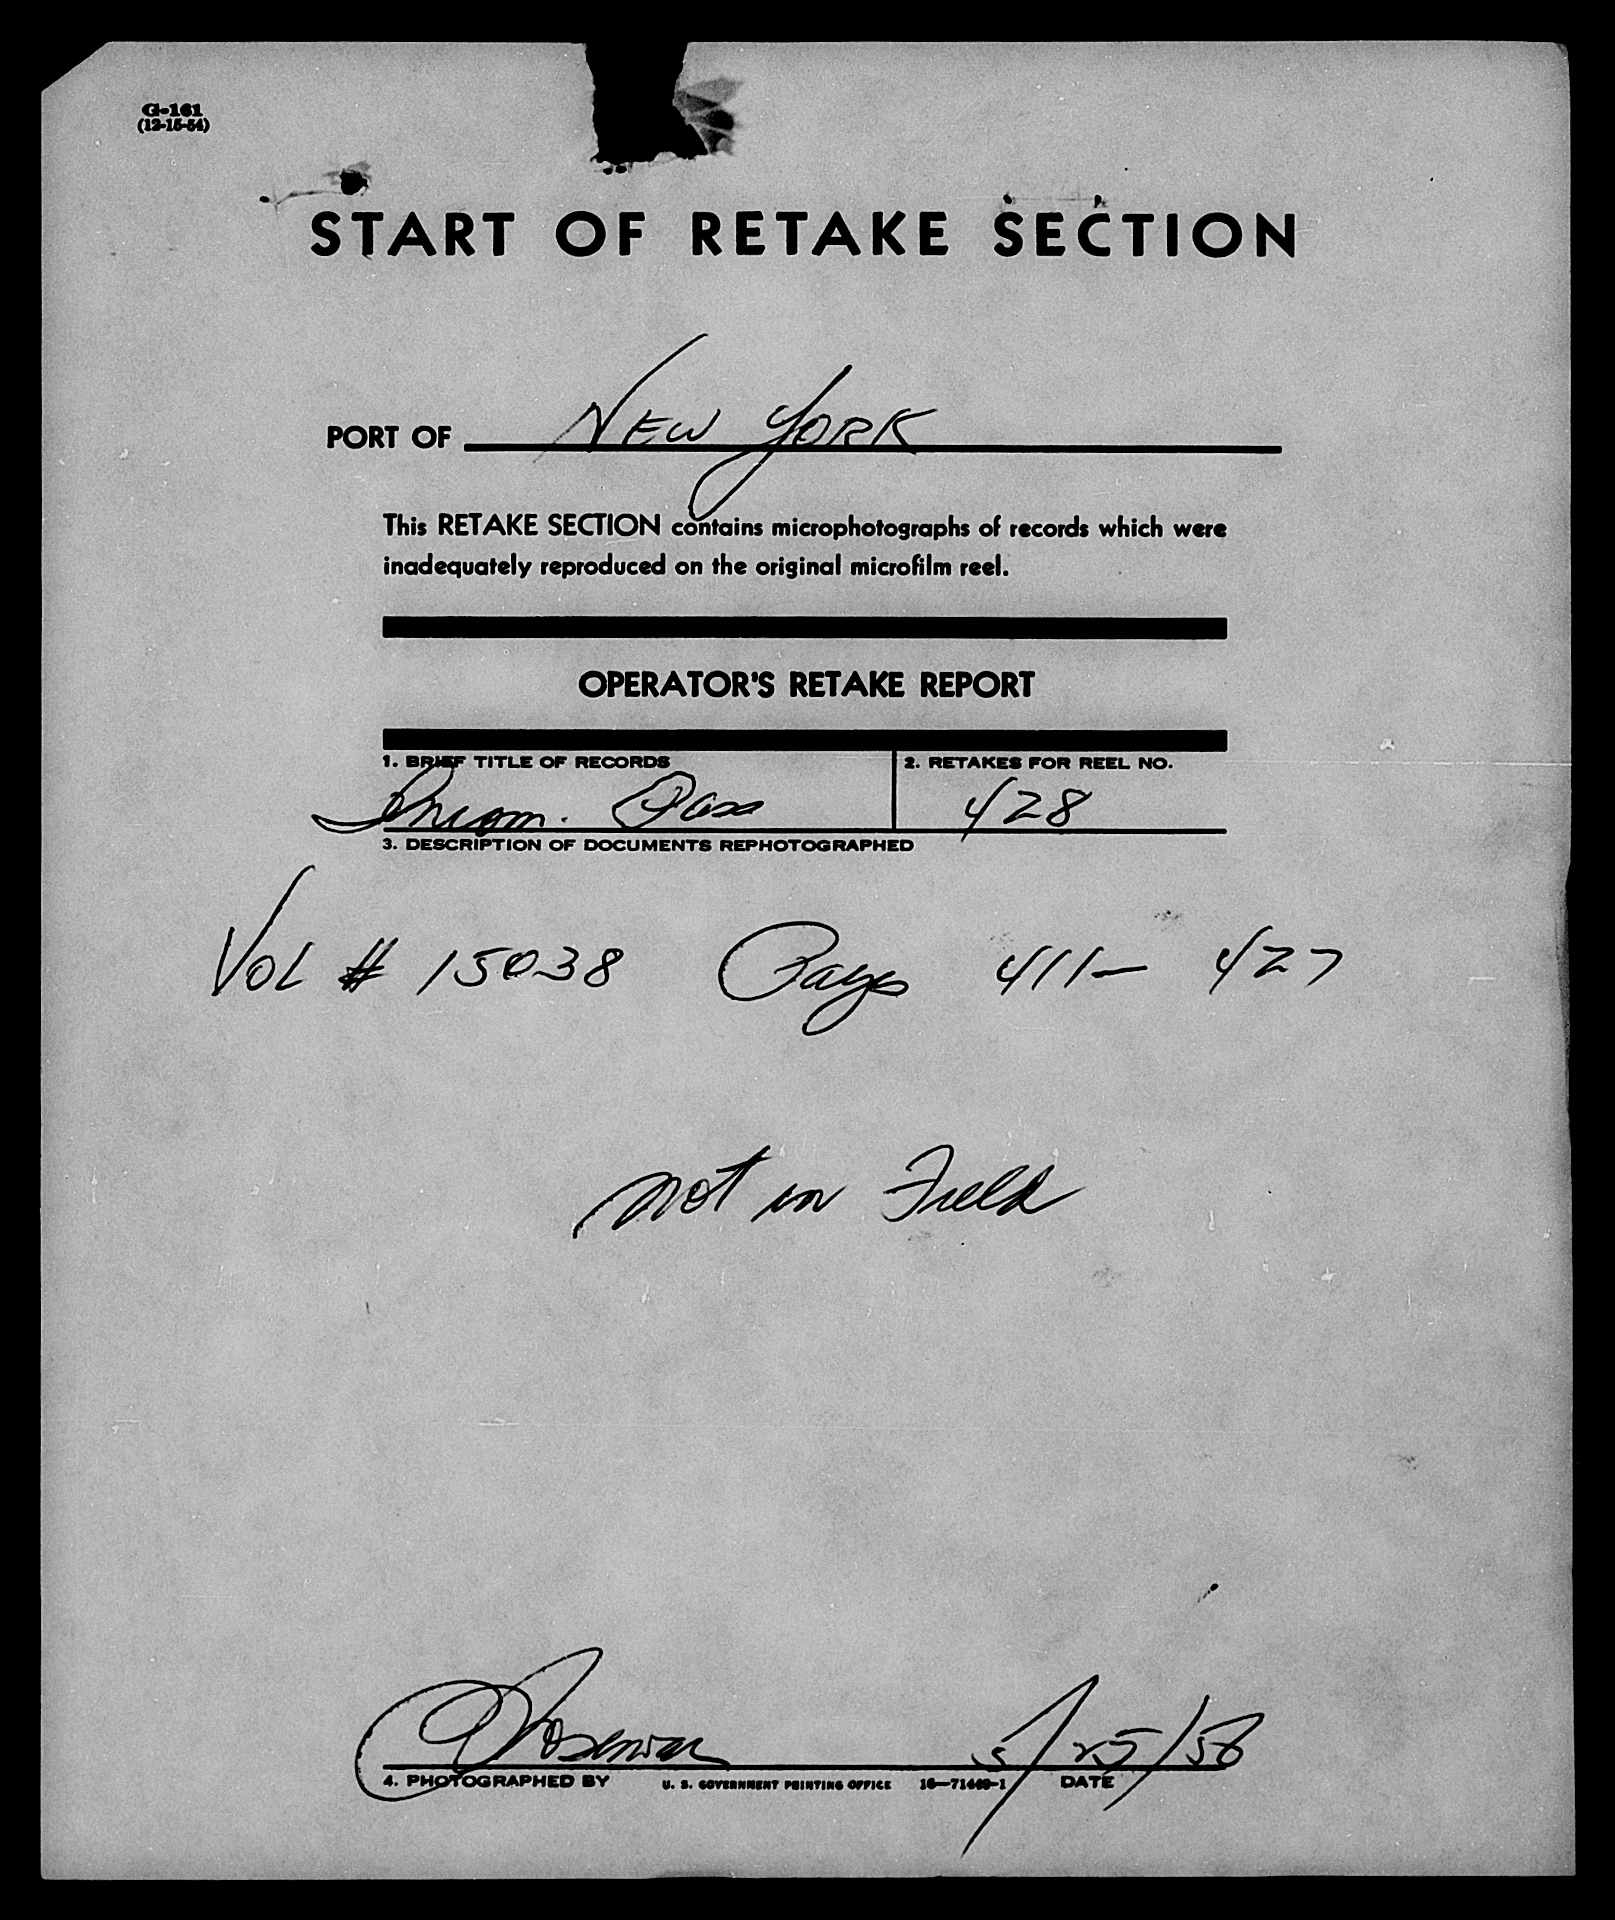 G-161
(12-15-54)
START OF RETAKE SECTION
PORT OF NEW YORK
This RETAKE SECTION contains microphotographs of records which were
inadequately reproduced on the original microfilm reel.
OPERATOR'S RETAKE REPORT
1. BRIEF TITLE OF RECORDS 2. RETAKES FOR REEL NO.
Incom. Pass 428
3. DESCRIPTION OF DOCUMENTS REPHOTOGRAPHED
VOL # 15038 Pages 411- 427
not in Field
5/25/56
4. PHOTOGRAPHED BY U. S. GOVERNMENT PRINTING OFFICE 16—71449-1 DATE